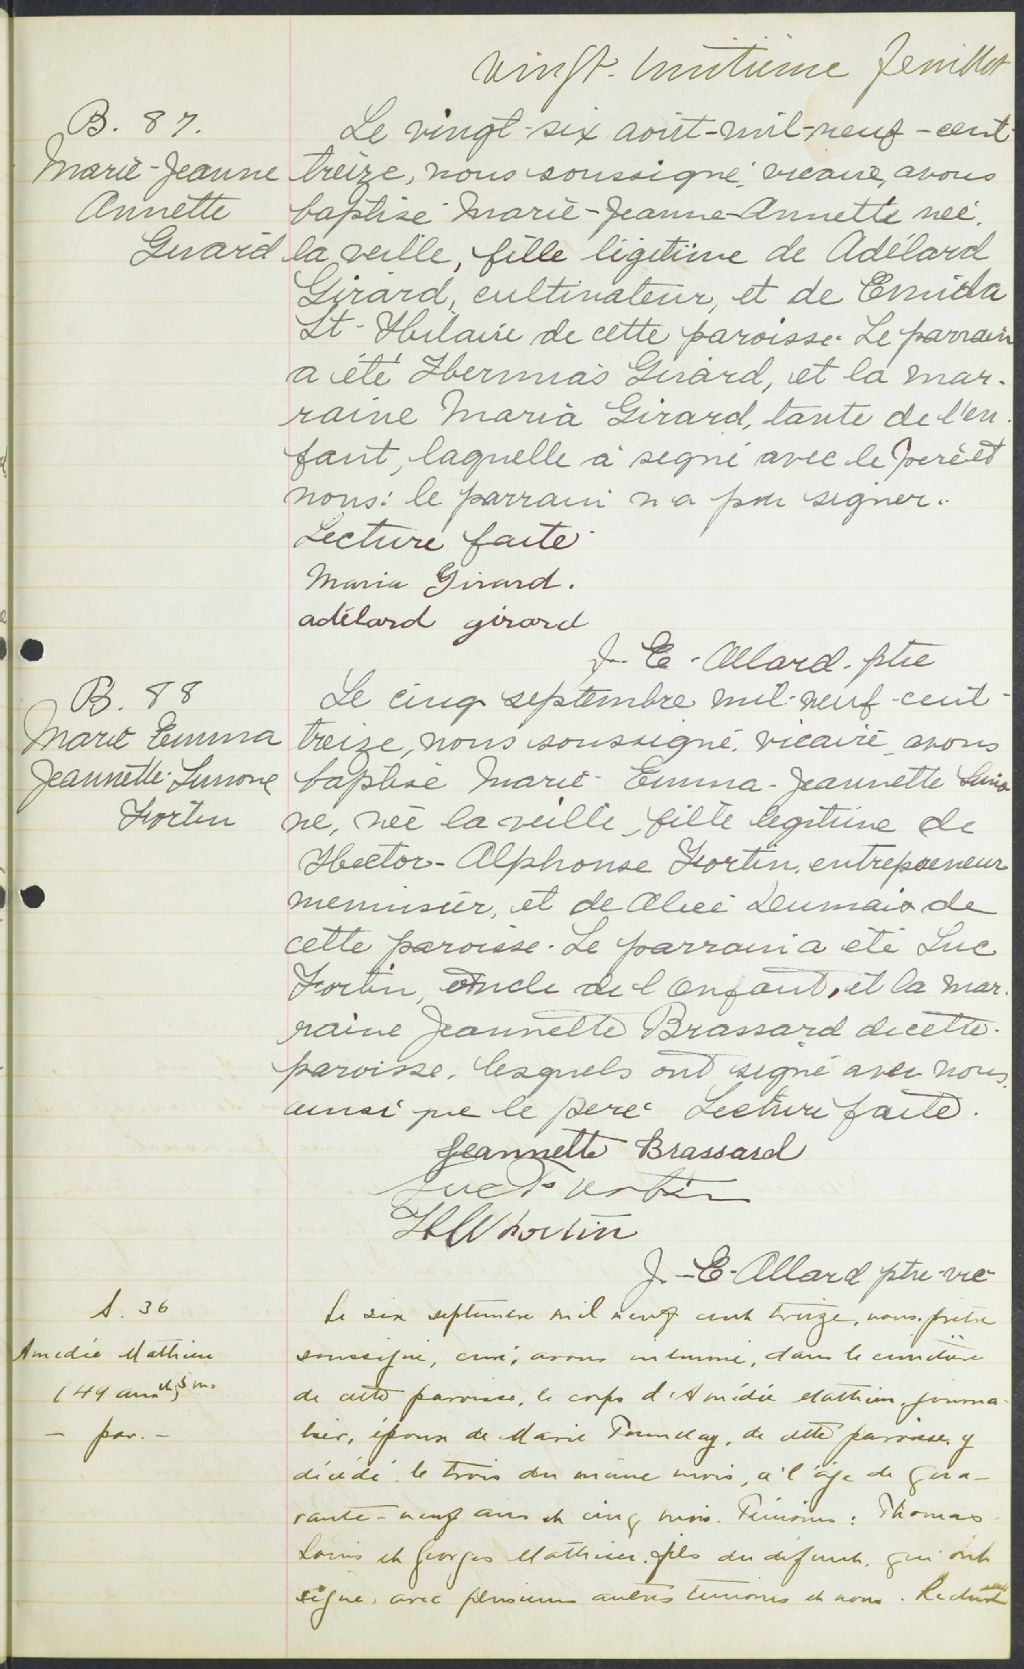 vingt-huitième feuillet
B. 87.
Marie-Jeanne
Annette
Girard
Le vingt-six août-mil-neuf-cent-
treize, nous soussigné, vicaire, avons
baptisé Marie-Jeanne-Annette née
la veille, fille légitime de Adélard
Girard, cultivateur, et de Emida
St-Hilaire de cette paroisse. Le parrain
a été Hermias Girard, et la mar-
raine Maria Girard, tante de l'en-
fant, laquelle a signé avec le père et
nous: le parrain n'a pu signer.
Lecture faite.
Maria Girard.
adélard girard
J. E. Allard. ptre
B. 88
Marie Emma
Jeannette Simone
Fortin
Le cinq septembre mil-neuf-cent-
treize, nous soussigné, vicaire, avons
baptisé Marie-Emma-Jeannette Simo
ne, née la veille, fille légitime de
Hector-Alphonse Fortin, entrepreneur
menuisier, et de Alice Dumais de
cette paroisse. Le parrain a été Luc
Fortin, oncle de l'enfant, et la mar-
raine Jeannette Brassard de cette
paroisse, lesquels ont signé avec nous,
ainsi que le père. Lecture faite.
Jeannette Brassard
Luc Fortin
H A Fortin
J.-E-Allard ptre-vic
S. 36
Amédée Mathieu
(49 ans et 5 ms
- par. -
Le six septembre mil neuf cent treize, nous, prêtre
soussigné, curé, avons inhumé, dans le cimetière
de cette paroisse, le corps d'Amédée Mathieu, journa-
lier, époux de Marie Tremblay, de cette paroisse, y
décédé le trois du même mois, à l'âge de qua-
rante-neuf ans et cinq mois. Témoins: Thomas
Louis et Georges Mathieu, fils du défunt, qui ont
signé, avec plusieurs autres témoins et nous. Lecture